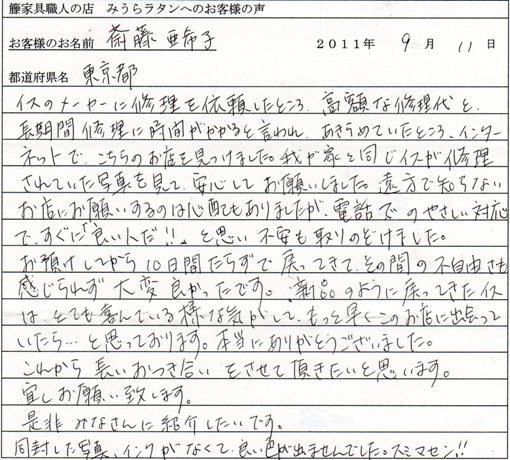 籐家具職人の店　みうらラタンへのお客様の声
お客様のお名前　斎藤 亜希子　2011年 9月 11日
都道府県名　東京都
イスのメーカーに修理を依頼したところ、高額な修理代と、
長期間修理に時間がかかると言われ、あきらめていたところ、インター
ネットで、こちらのお店を見つけました。我が家と同じイスが修理
されていた写真を見て、安心してお願いしました。遠方で知らない
お店にお願いするのは心配でもありましたが、電話でのやさしい対応
で、すぐに「良い人だ!!」と思い不安も取りのどけました。
お預けしてから10日間たらずで戻ってきて、その間の不自由さも
感じられず大変良かったです。新品のように戻ってきたイス
は、とても喜んでいる様な気がして、もっと早くこのお店に出会って
いたら…と思っております。本当にありがとうございました。
これから長いおつき合いをさせて頂きたいと思います。
宜しお願い致します。
是非みなさんに紹介したいです。
同封した写真、インクがなくて、良い色が出ませんでした。スミマセン!!